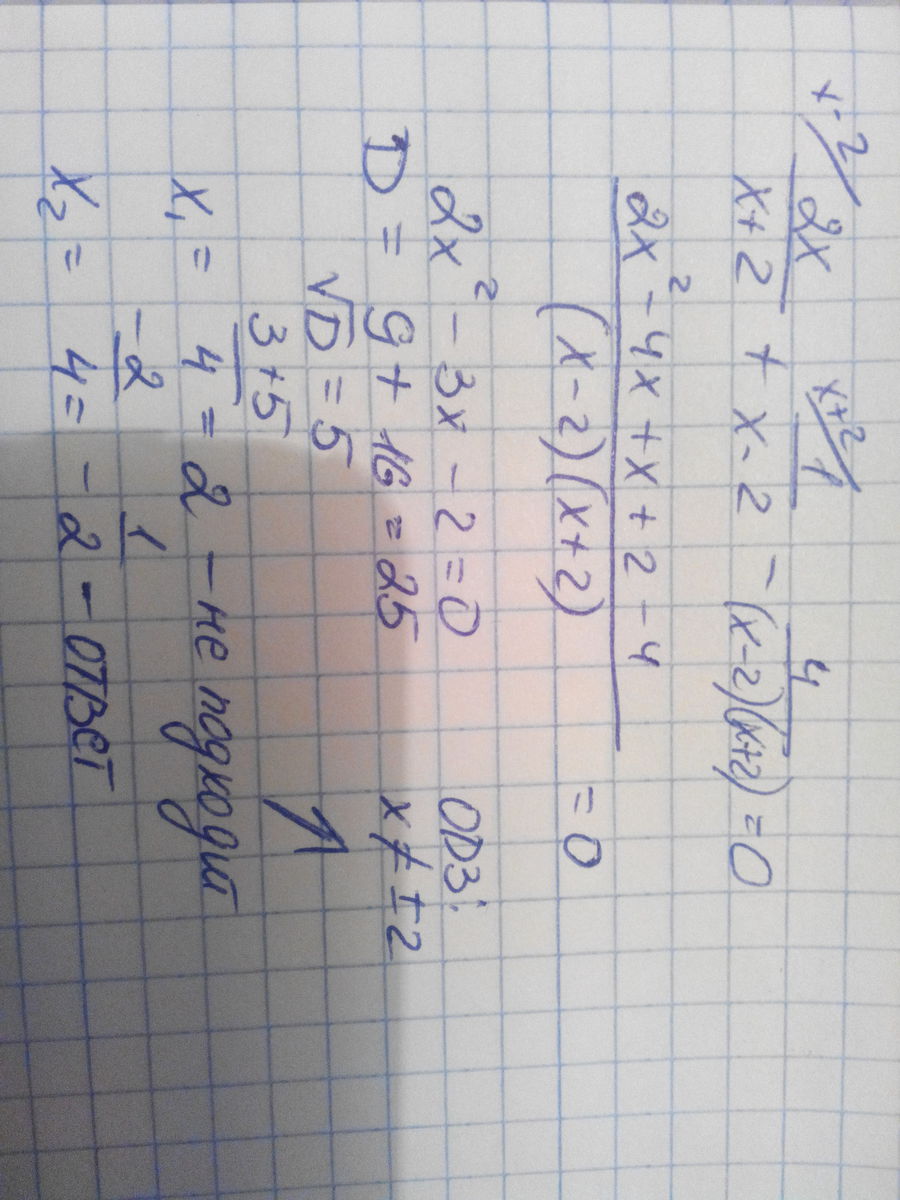 x-2/ 2x/(x+2) + x+2/ 1/(x-2) - 4/((x-2)(x+2)) = 0
(2x² - 4x + x + 2 - 4)/((x-2)(x+2)) = 0
2x² - 3x - 2 = 0 ОДЗ:
D = 9 + 16 = 25 x ≠ ± 2
√D = 5
x₁ = (3+5)/4 = 2 - не подходит ↑
x₂ = -2/4 = - 1/2 - ответ